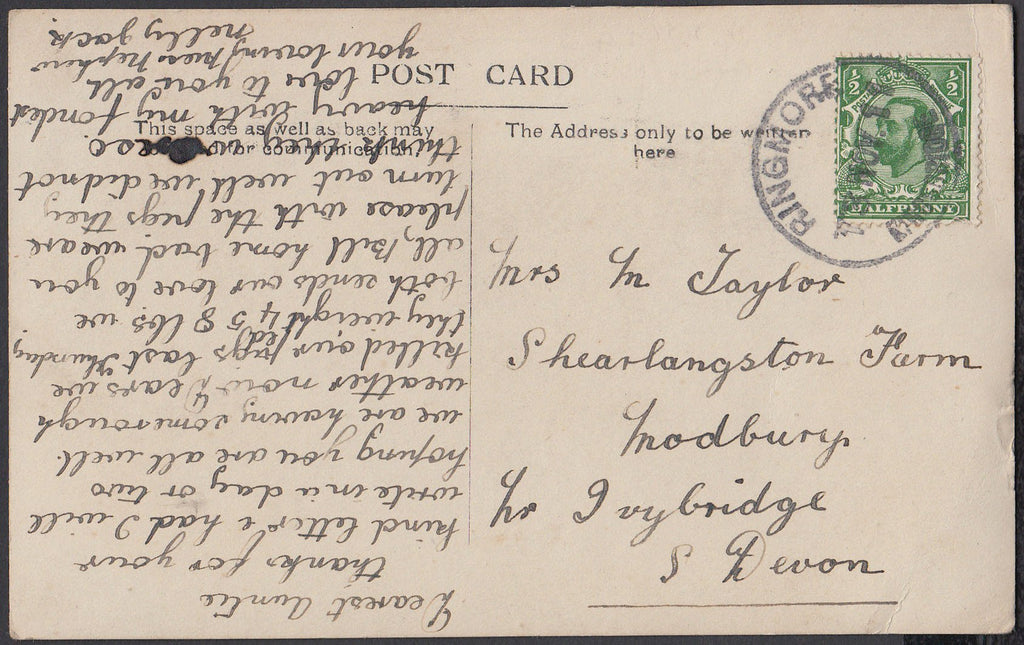 POST CARD
This space as well as back may
for communication.
The Address only to be written
here
½ ½
HALFPENNY
RINGMORE
NOV
Mrs M Taylor
Shearlangston Farm
Modbury
Nr Ivybridge
S Devon
Dearest Auntie
thanks for your
kind letter e had I will
write in a day or two
hoping you are all well.
we are having some rough
weather now Dears we
killed our pigs last Thursday
they weight 458 lbs. we
both sends our love to you
all, Bill home we are
please with the pigs they
turn out well we did not
think they so
heavy with my fondest
love to you all
your loving niece Nephew
nelly Jack